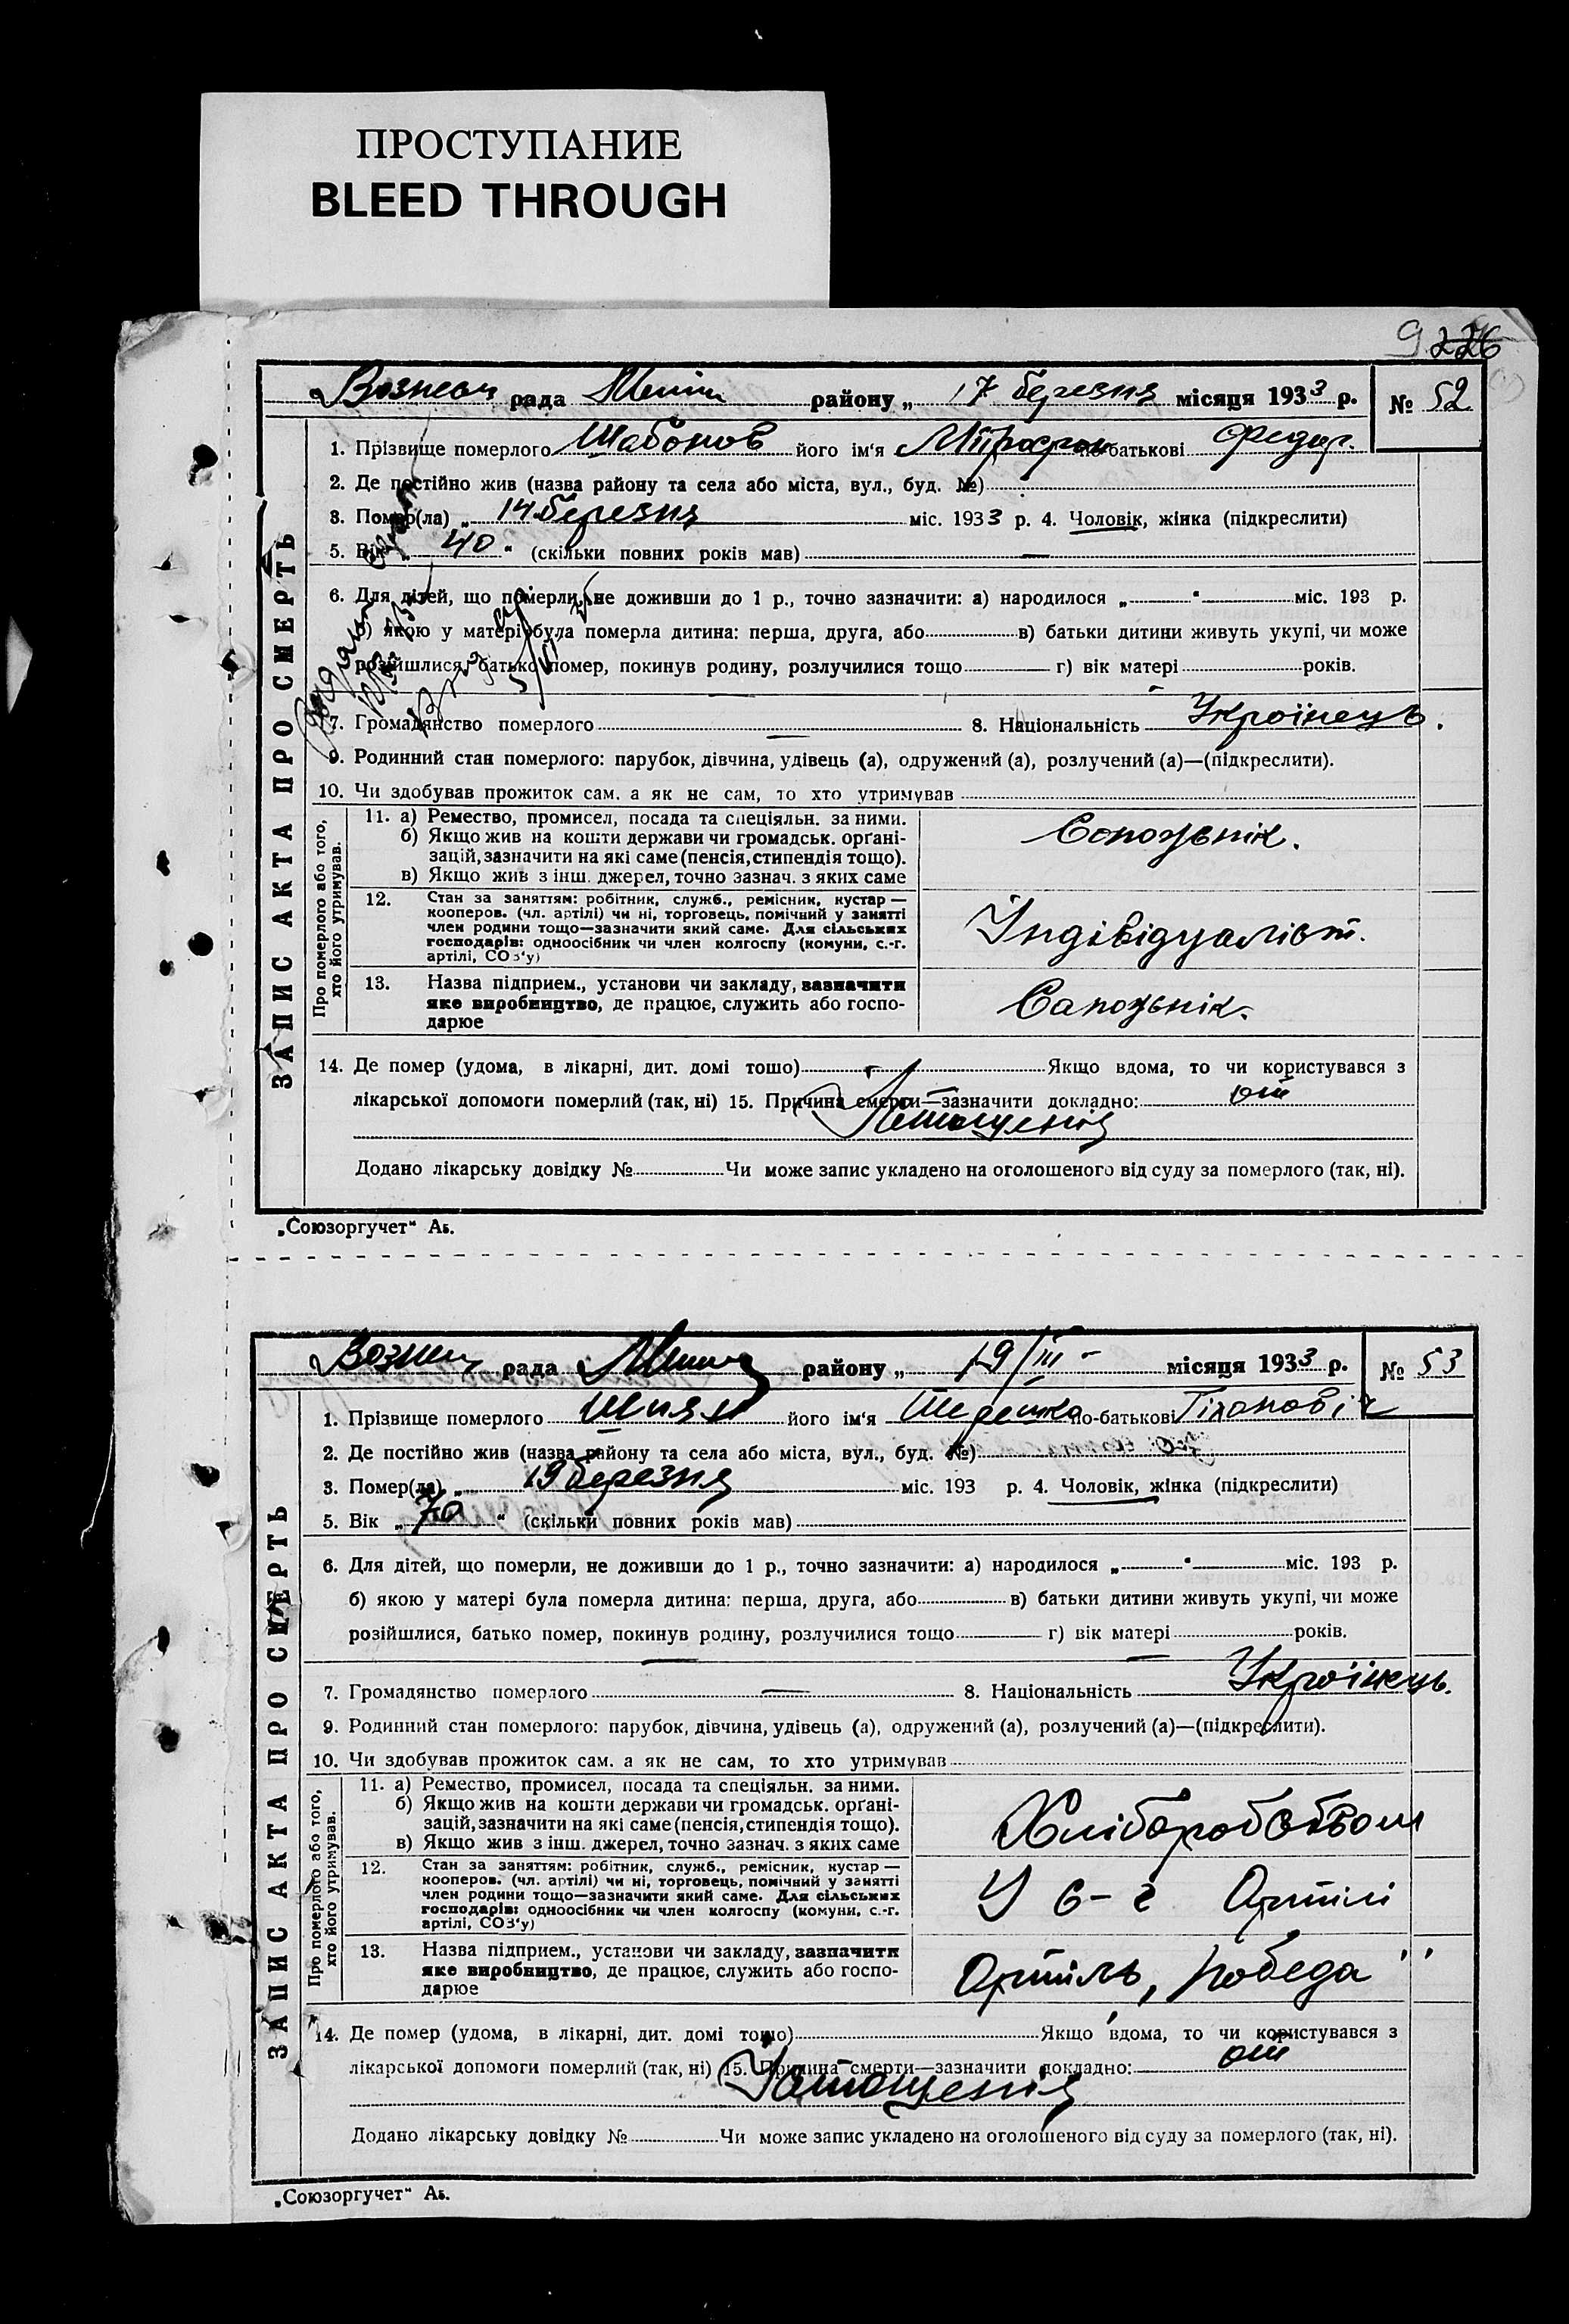 ПРОСТУПАНИЕ
BLEED THROUGH
9 226
Вознесен рада районy „ 17 березня місяця 1933 р. № 52
1. Прізвище померлого Шабонов його ім'я Мітрофан по-батькові Федор.
2. Де постійно жив (назва району та села або міста, вул., буд. №)
3. Помер(ла) „ 14 березня міс. 1933 р. 4. Чоловік, жінка (підкреслити)
5. Вік „ 40 “ (скільки повних років мав) —
6. Для дітей, що померли, не доживши до 1 р., точно зазначити: а) народилося „ “ міс. 193 р.
б) якою у матері була померла дитина: перша, друга, або в) батьки дитини живуть укупі, чи може
розійшлися, батько помер, покинув родину, розлучилися тощо г) вік матері років.
7. Громадянство померлого — 8. Національність Україінець.
9. Родинний стан померлого: парубок, дівчина, удівець (а), одружений (а), розлучений (а)—(підкреслити).
10. Чи здобував прожиток сам, а як не сам, то хто утримував
ЗАПИС АКТА ПРО СМЕРТЬ
Про померлого або того,
хто його утримував.
11. а) Ремество, промисел, посада та спеціяльн. за ними.
б) Якщо жив на кошти держави чи громадськ. органі-
зацій, зазначити на які саме (пенсія, стипендія тощо).
в) Якщо жив з інш. джерел, точно зазнач. з яких саме
Сопожнік.
12. Стан за заняттям: робітник, служб., ремісник, кустар —
кооперов. (чл. артілі) чи ні, торговець, помічний у занятті
член родини тощо—зазначити який саме. Для сільських
господарів: одноосібник чи член колгоспу (комуни, с.-г.
артілі, СОЗ'у)
Індівідуаліст.
13. Назва підприєм., установи чи закладу, зазначити
яке виробництво, де працює, служить або госпо-
дарює
Сапожнік.
14. Де помер (удома, в лікарні, дит. домі тощо) Якщо вдома, то чи користувався з
лікарської допомоги померлий (так, ні) 15. Причина смерти—зазначити докладно: от
Істощенія
Додано лікарську довідку № Чи може запис укладено на оголошеного від суду за померлого (так, ні).
„Союзоргучет“ Аь.
Вознесен рада району „ 19/III – місяця 1933 р. № 53
1. Прізвище померлого Шиян його ім'я Терешко по-батькові Гіхоновіч
2. Де постійно жив (назва району та села або міста, вул., буд. №)
3. Помер(ла) „ 19 березня міс. 193 р. 4. Чоловік, жінка (підкреслити)
5. Вік „ 70 “ (скільки повних років мав)
6. Для дітей, що померли, не доживши до 1 р., точно зазначити: а) народилося „ “ міс. 193 р.
б) якою у матері була померла дитина: перша, друга, або в) батьки дитини живуть укупі, чи може
розійшлися, батько помер, покинув родину, розлучилися тощо г) вік матері років.
7. Громадянство померлого — 8. Національність Україінець.
9. Родинний стан померлого: парубок, дівчина, удівець (а), одружений (а), розлучений (а)—(підкреслити).
10. Чи здобував прожиток сам, а як не сам, то хто утримував
ЗАПИС АКТА ПРО СМЕРТЬ
Про померлого або того,
хто його утримував.
11. а) Ремество, промисел, посада та спеціяльн. за ними.
б) Якщо жив на кошти держави чи громадськ. органі-
зацій, зазначити на які саме (пенсія, стипендія тощо).
в) Якщо жив з інш. джерел, точно зазнач. з яких саме
Хліборобством
12. Стан за заняттям: робітник, служб., ремісник, кустар —
кооперов. (чл. артілі) чи ні, торговець, помічний у занятті
член родини тощо—зазначити який саме. Для сільських
господарів: одноосібник чи член колгоспу (комуни, с.-г.
артілі, СОЗ'у)
У с-г Артілі
13. Назва підприєм., установи чи закладу, зазначити
яке виробництво, де працює, служить або госпо-
дарює
Артіль, Победа"
14. Де помер (удома, в лікарні, дит. домі тощо) Якщо вдома, то чи користувався з
лікарської допомоги померлий (так, ні) 15. Причина смерти—зазначити докладно: от
Істощенія
Додано лікарську довідку № Чи може запис укладено на оголошеного від суду за померлого (так, ні).
„Союзоргучет“ Аь.